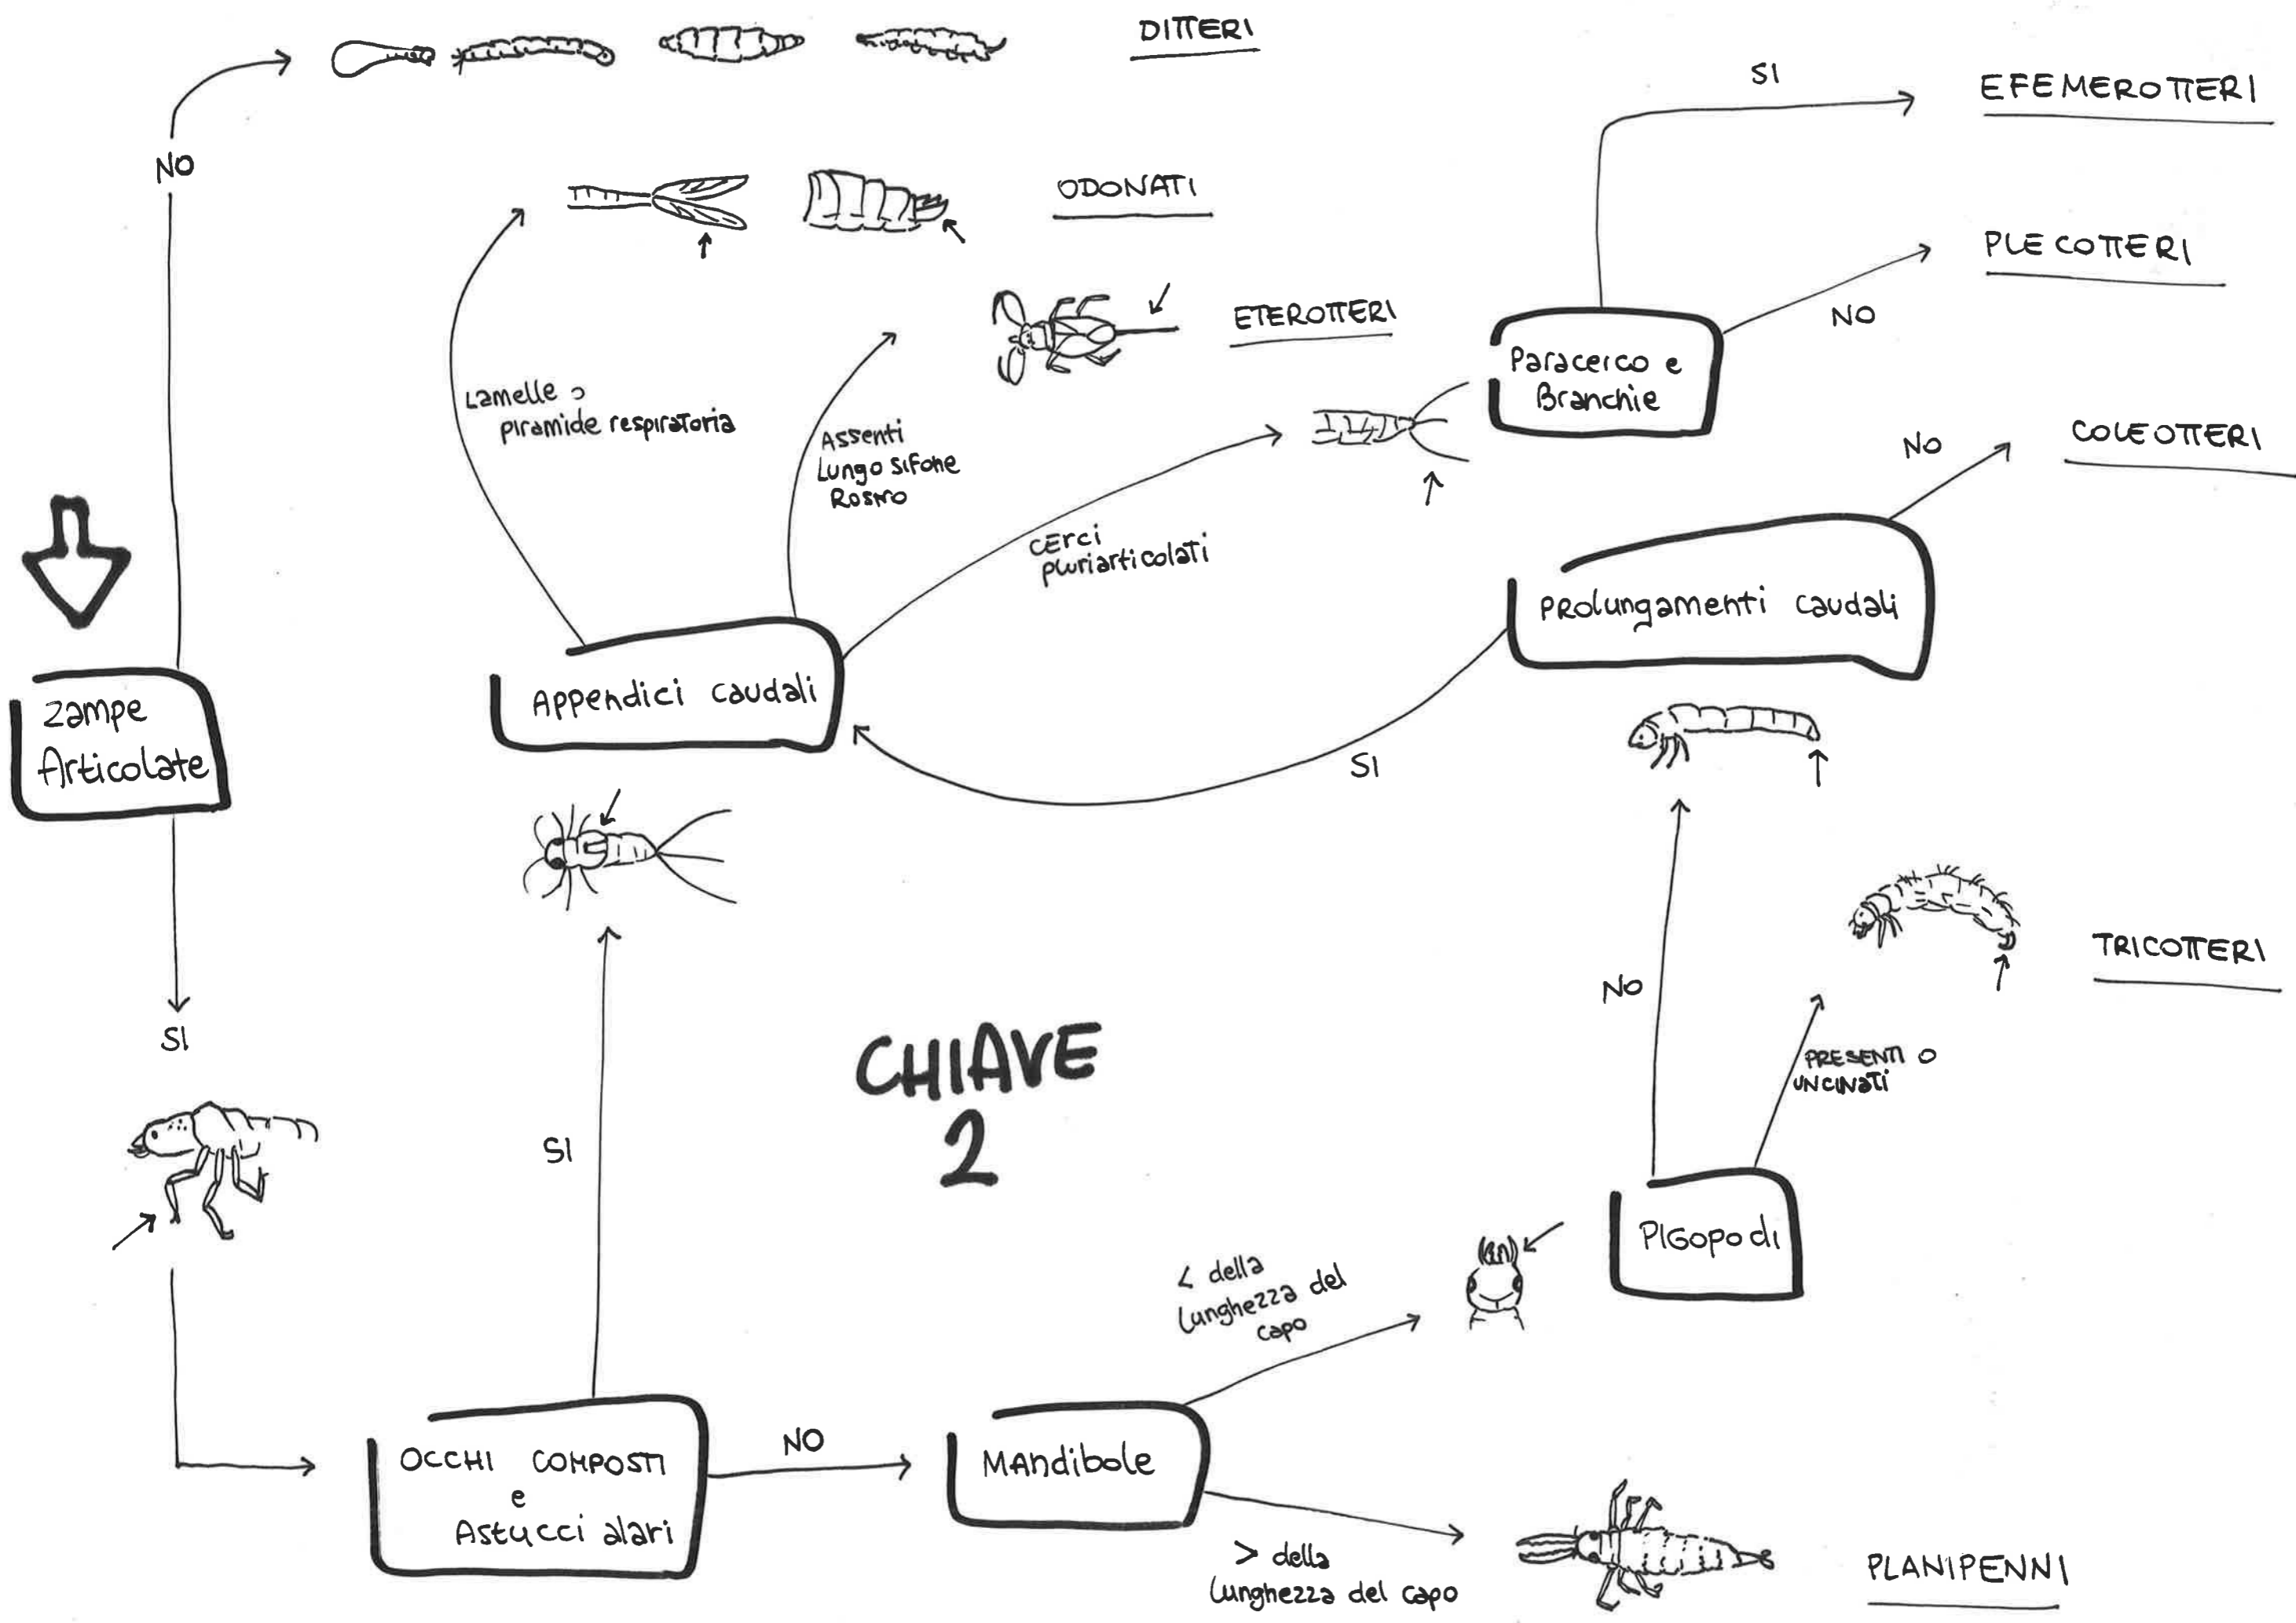 DITTERI
SI
EFEMEROTTERI
NO
ODONATI
PLECOTTERI
ETEROTTERI
NO
Paracerco e
Branchie
Lamelle o
piramide respiratoria
Assenti
Lungo sifone
Rostro
NO
COLEOTTERI
Cerci
pluriarticolati
Prolungamenti caudali
Appendici caudali
Zampe
Articolate
SI
NO
TRICOTTERI
SI
CHIAVE
2
PRESENTI O
UNCINATI
SI
Pigopodi
< della
lunghezza del
capo
OCCHI COMPOSTI
e
Astucci alari
NO
Mandibole
> della
lunghezza del capo
PLANIPENNI